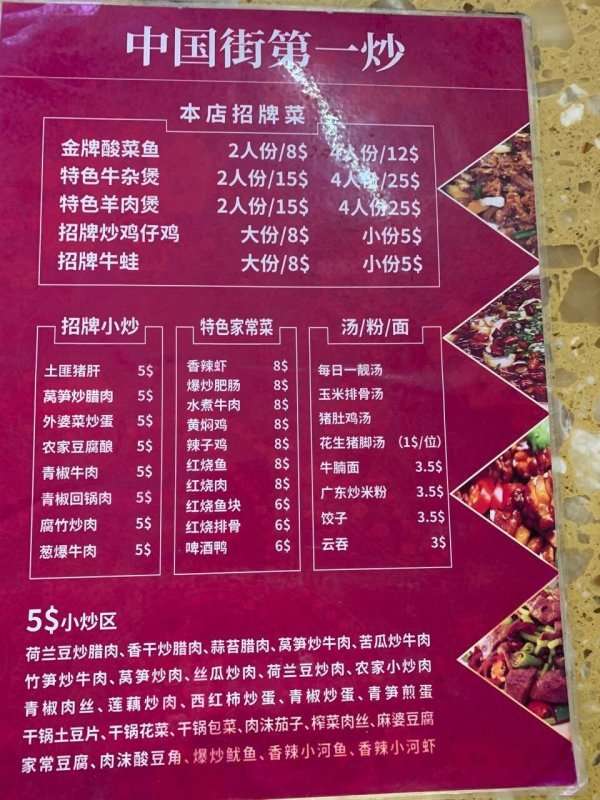 中国街第一炒
本店招牌菜
金牌酸菜鱼 2人份/8$ 4人份/12$
特色牛杂煲 2人份/15$ 4人份/25$
特色羊肉煲 2人份/15$ 4人份25$
招牌炒鸡仔鸡 大份/8$ 小份5$
招牌牛蛙 大份/8$ 小份5$
招牌小炒
土匪猪肝 5$
莴笋炒腊肉 5$
外婆菜炒蛋 5$
农家豆腐酿 5$
青椒牛肉 5$
青椒回锅肉 5$
腐竹炒肉 5$
葱爆牛肉 5$
特色家常菜
香辣虾 8$
爆炒肥肠 8$
水煮牛肉 8$
黄焖鸡 8$
辣子鸡 8$
红烧鱼 8$
红烧肉 8$
红烧鱼块 6$
红烧排骨 6$
啤酒鸭 6$
汤/粉/面
每日一靓汤
玉米排骨汤
猪肚鸡汤
花生猪脚汤 (1$/位)
牛腩面 3.5$
广东炒米粉 3.5$
饺子 3.5$
云吞 3$
5$小炒区
荷兰豆炒腊肉、香干炒腊肉、蒜苔腊肉、莴笋炒牛肉、苦瓜炒牛肉
竹笋炒牛肉、莴笋炒肉、丝瓜炒肉、荷兰豆炒肉、农家小炒肉
青椒肉丝、莲藕炒肉、西红柿炒蛋、青椒炒蛋、青笋煎蛋
干锅土豆片、干锅花菜、干锅包菜、肉沫茄子、榨菜肉丝、麻婆豆腐
家常豆腐、肉沫酸豆角、爆炒鱿鱼、香辣小河鱼、香辣小河虾